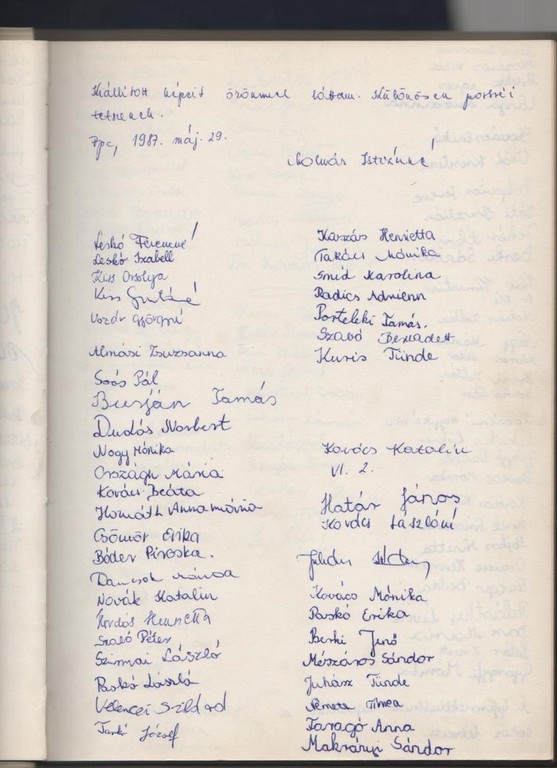 Kiállított képeit örömmel láttam. Különösen portréi
tetszenek.
Zpc, 1987. máj. 29.
Molnár Istvánné
Leskó Ferencné
Leskó Izabell
Kiss Orsolya
Kiss Gyuláné
Vozár Györgyné
Almási Zsuzsanna
Soós Pál
Burján Tamás
Dudás Norbert
Nagy Mónika
Országh Mária
Kovács Beáta
Horváth Annamária
Csömör Erika
Bóder Piroska.
Dancsok Mária
Novák Katalin
Kordos Henrietta
Szabó Péter
Szirmai László
Paskó László
Velencei Szilárd
Tarki József
Kaszás Henrietta
Takács Mónika
Smid Karolina
Radics Adrienn
Porteleki Tamás.
Szabó Bernadett
Kuris Tünde
Kovács Katalin
VI. 2.
Határ János
Kovács Lászlóné
Kovács Mónika
Paskó Erika
Berki Jenő
Mészáros Sándor
Juhász Tünde
Németa Tímea
Faragó Anna
Makrányi Sándor